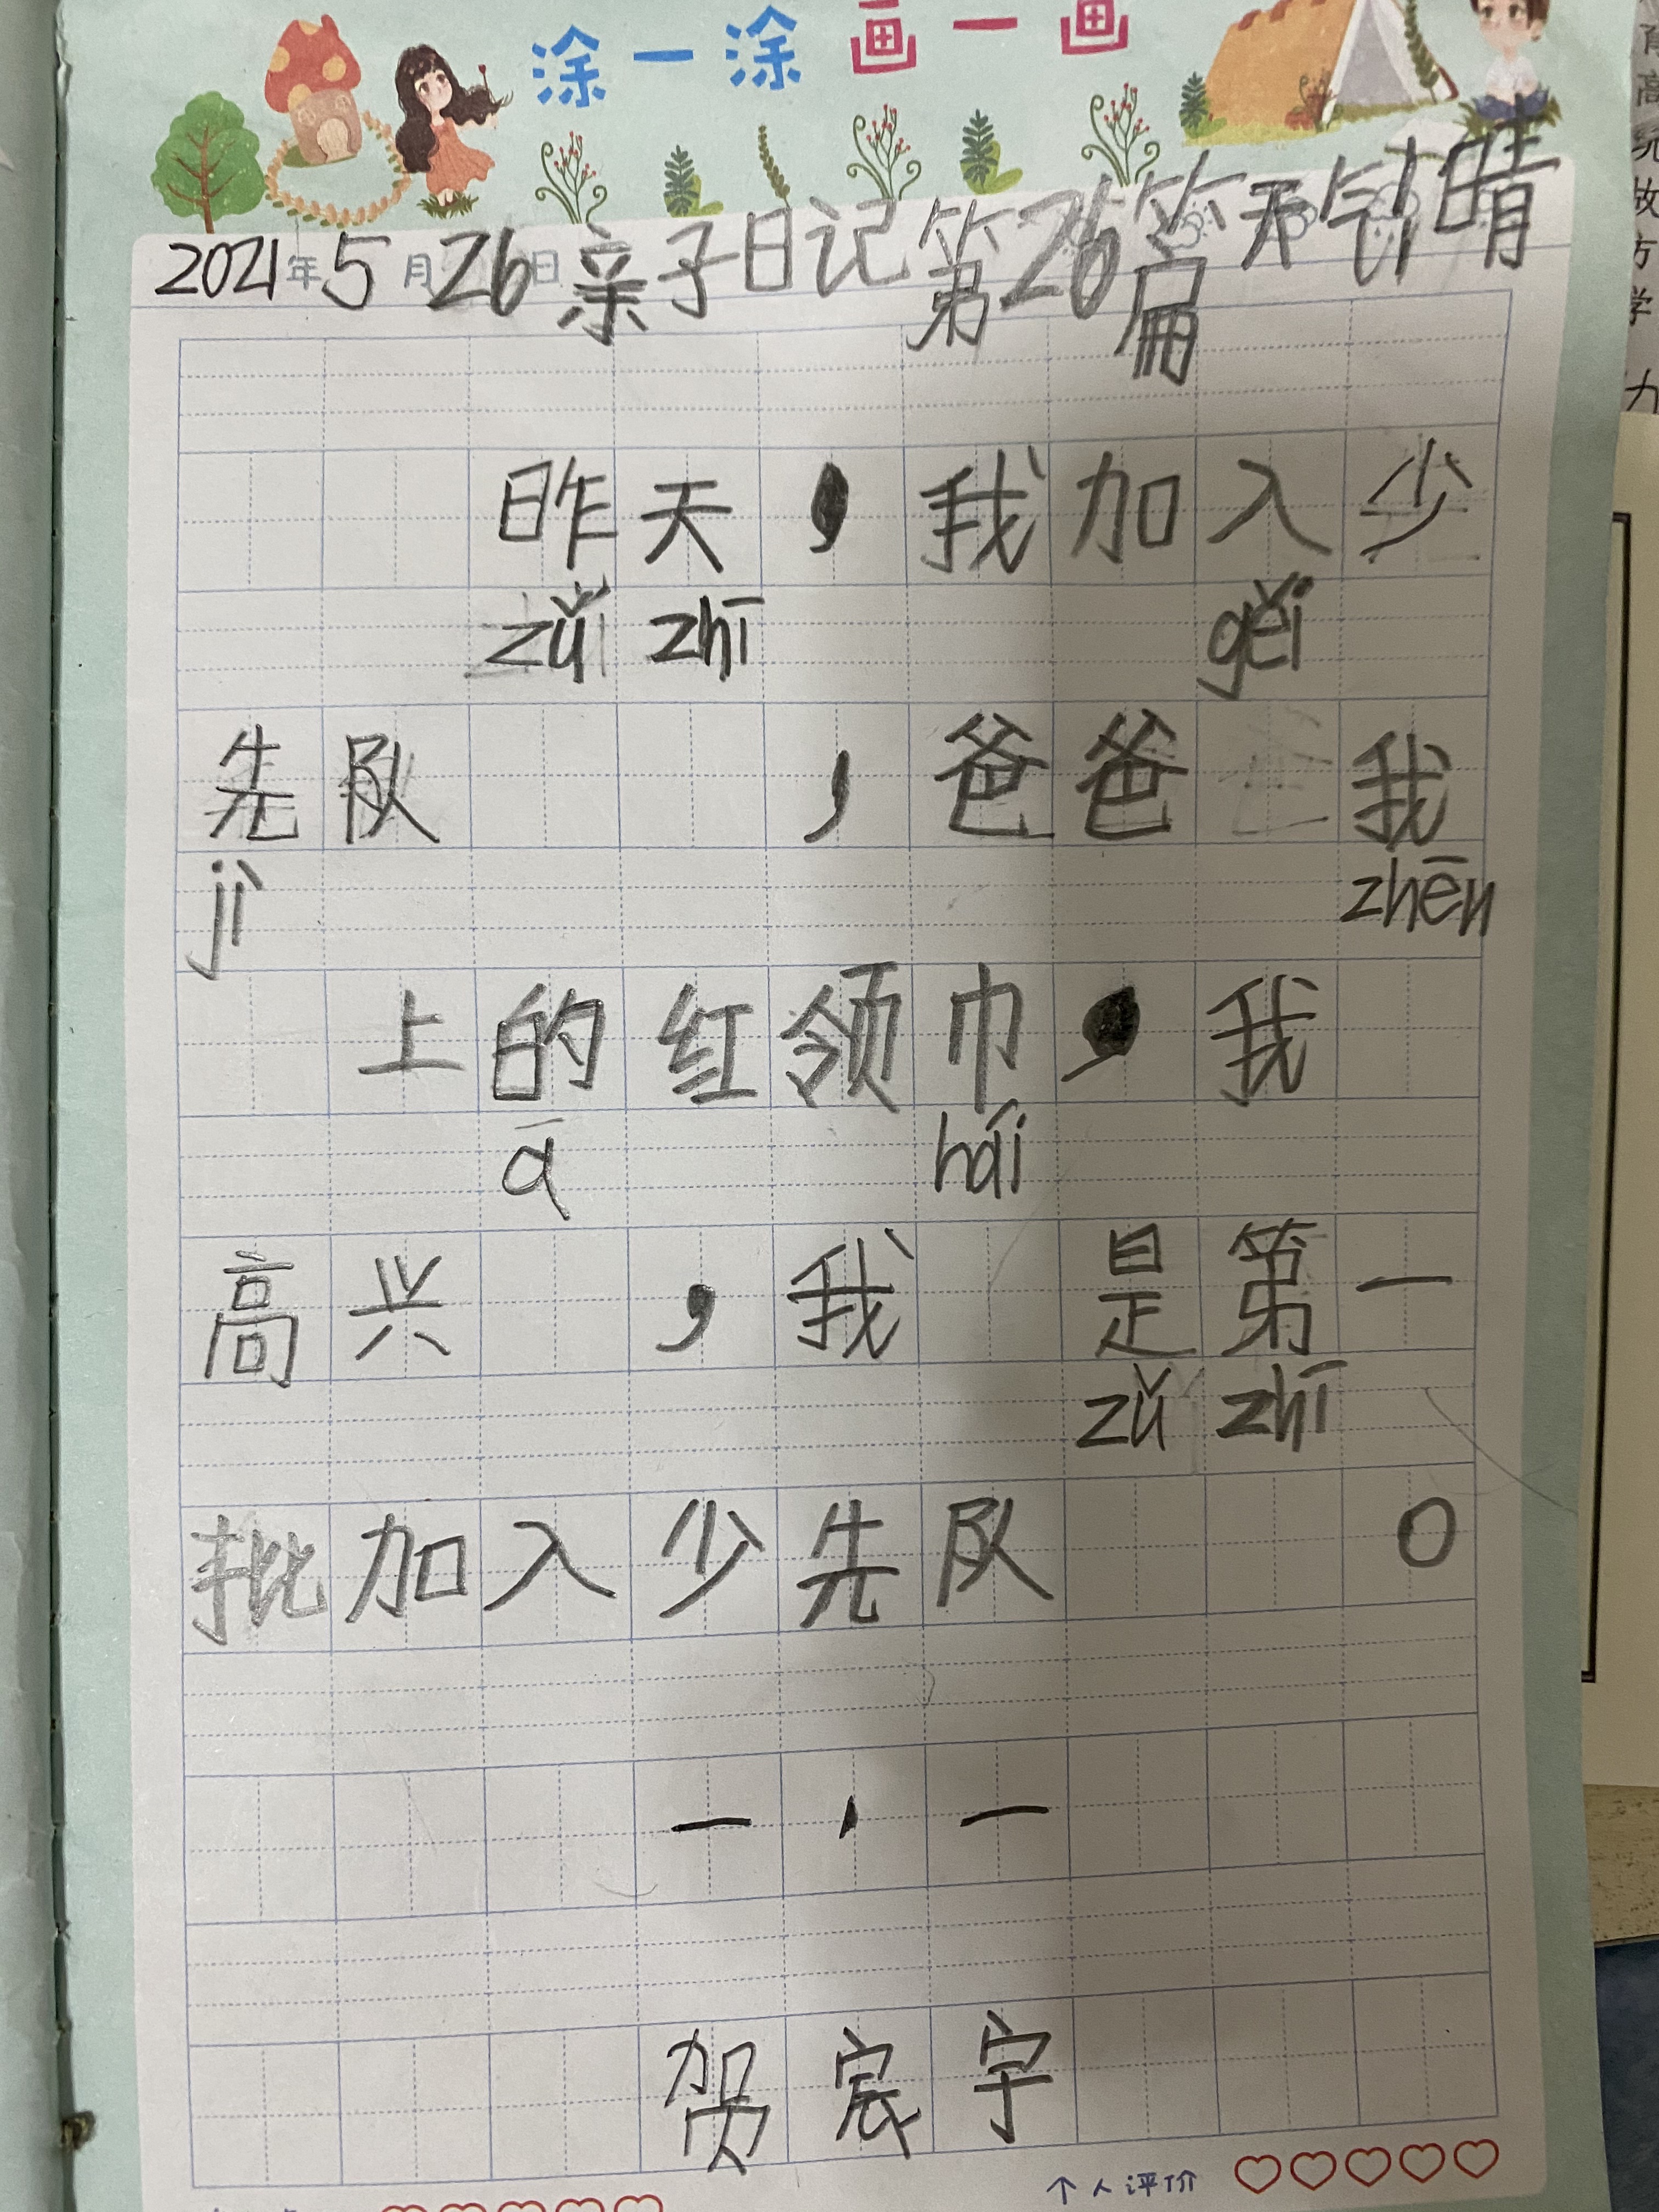 涂一涂画一画
2021年5月26日亲子日记第26篇天气晴
昨天，我加入少
zǔi zhī gěi
先队，爸爸我
jì zhēn
上的红领巾，我
ā hái
高兴，我是第一
zǔ zhī
批加入少先队。
一，一
贺宸宇
个人评价